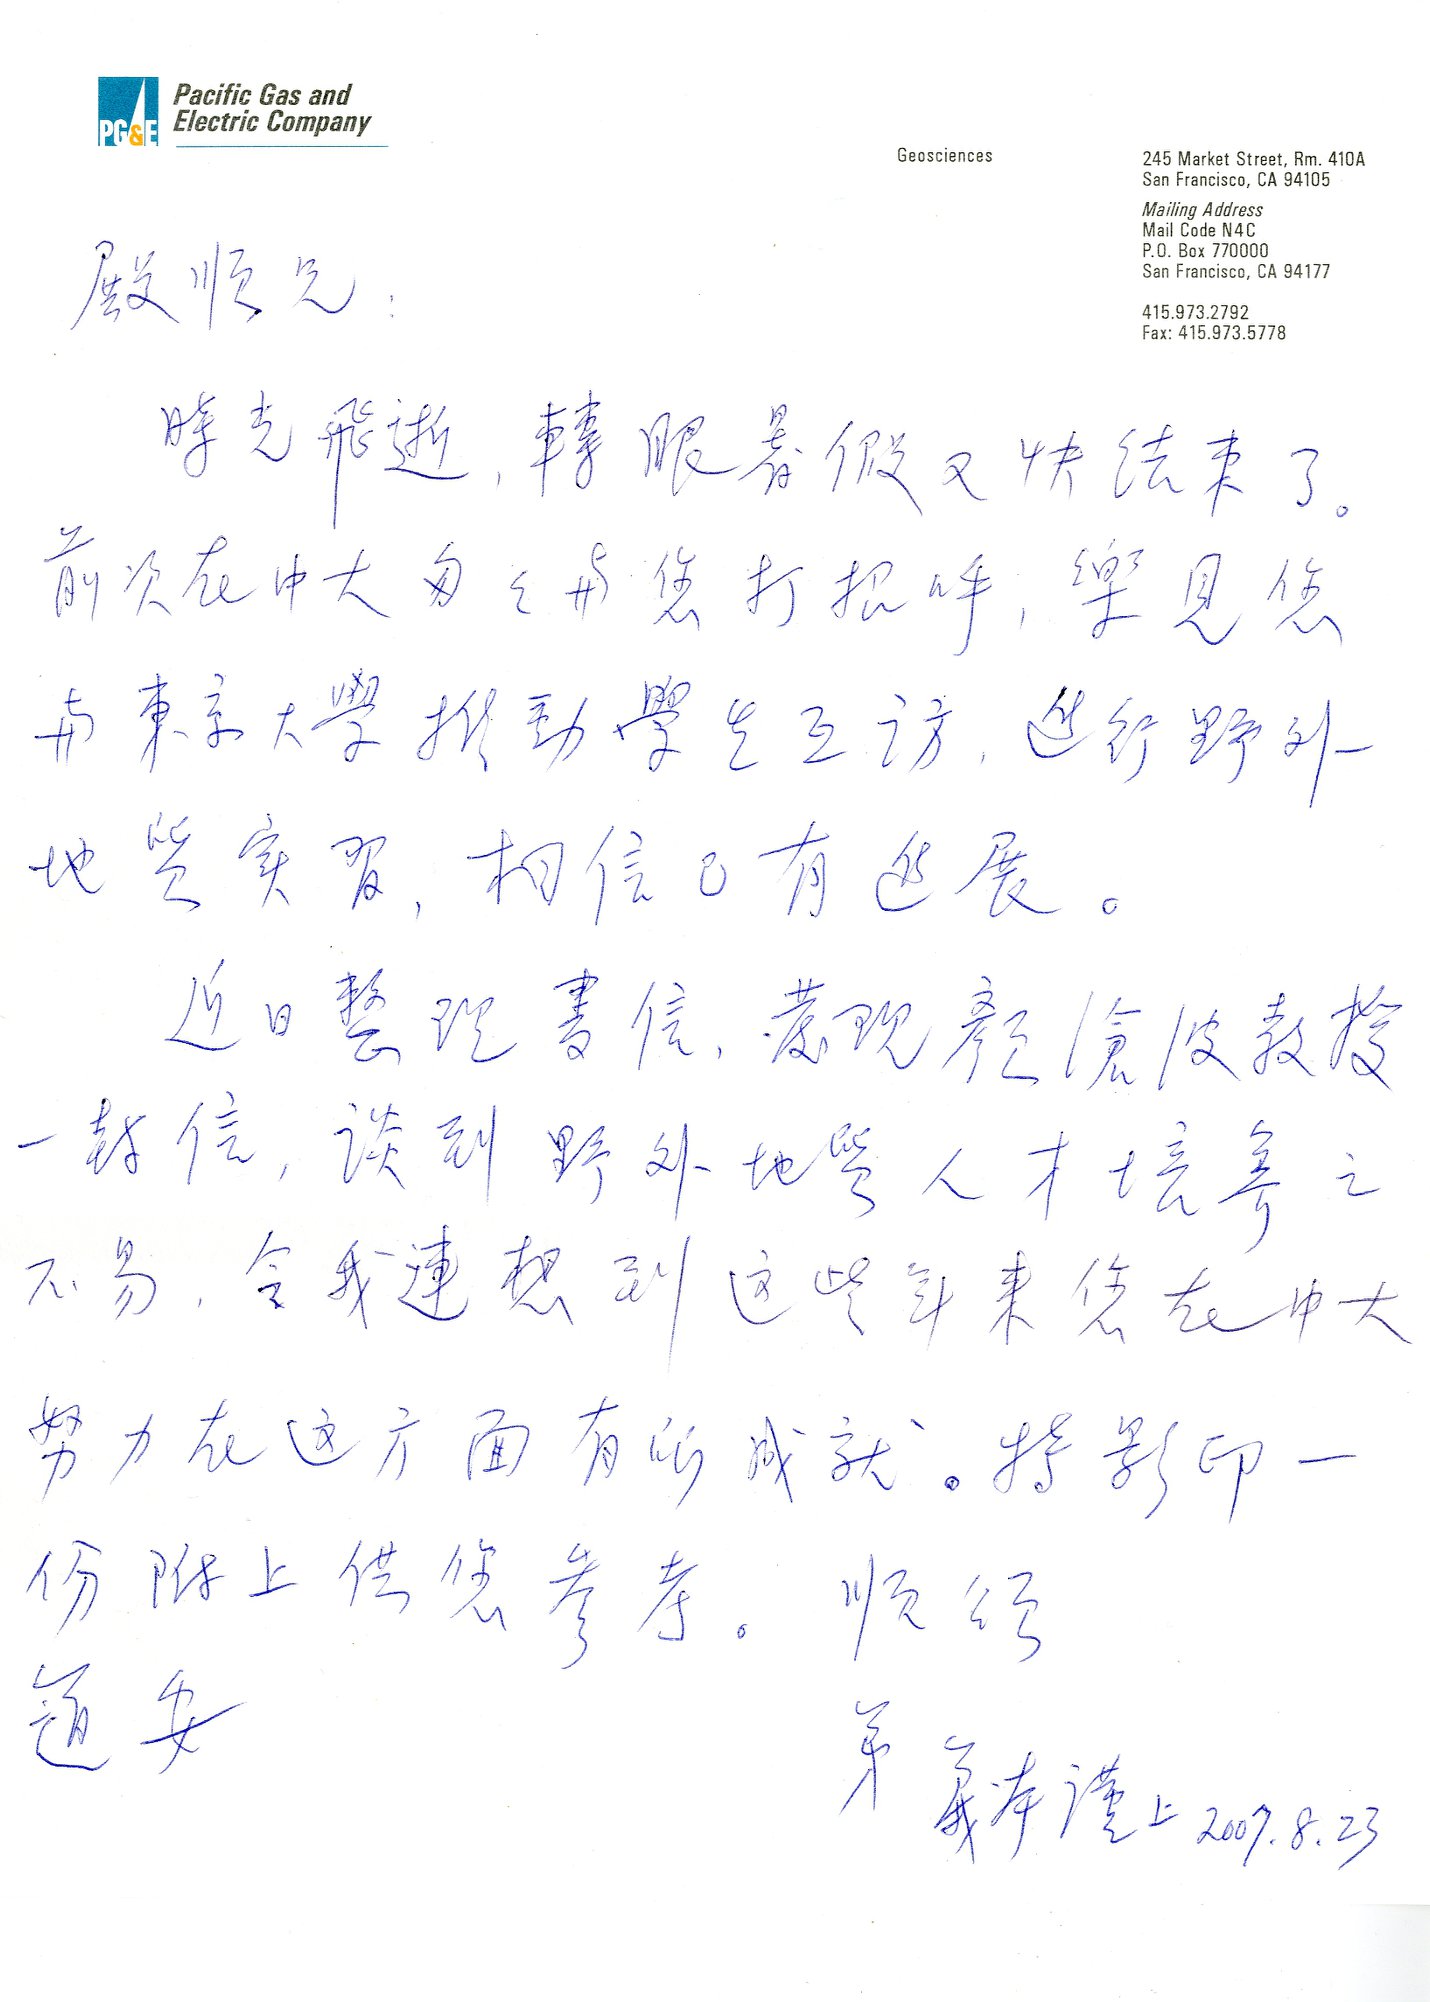 PG&E
Pacific Gas and
Electric Company
Geosciences
245 Market Street, Rm. 410A
San Francisco, CA 94105
Mailing Address
Mail Code N4C
P.O. Box 770000
San Francisco, CA 94177
415.973.2792
Fax: 415.973.5778
殿順兄：
時光飛逝，轉眼暑假又快結束了。
前次在中大匆匆與您打招呼，樂見您
與東京大學推動學生互訪，進行野外
地質實習，相信已有進展。
近日整理書信，發現顏滄波教授
一封信，談到野外地質人才培養之
不易，令我連想到这些年來您在中大
努力在这方面有所成就。特影印一
份附上供您參考。 順頌
道安
弟 義本謹上 2007.8.23